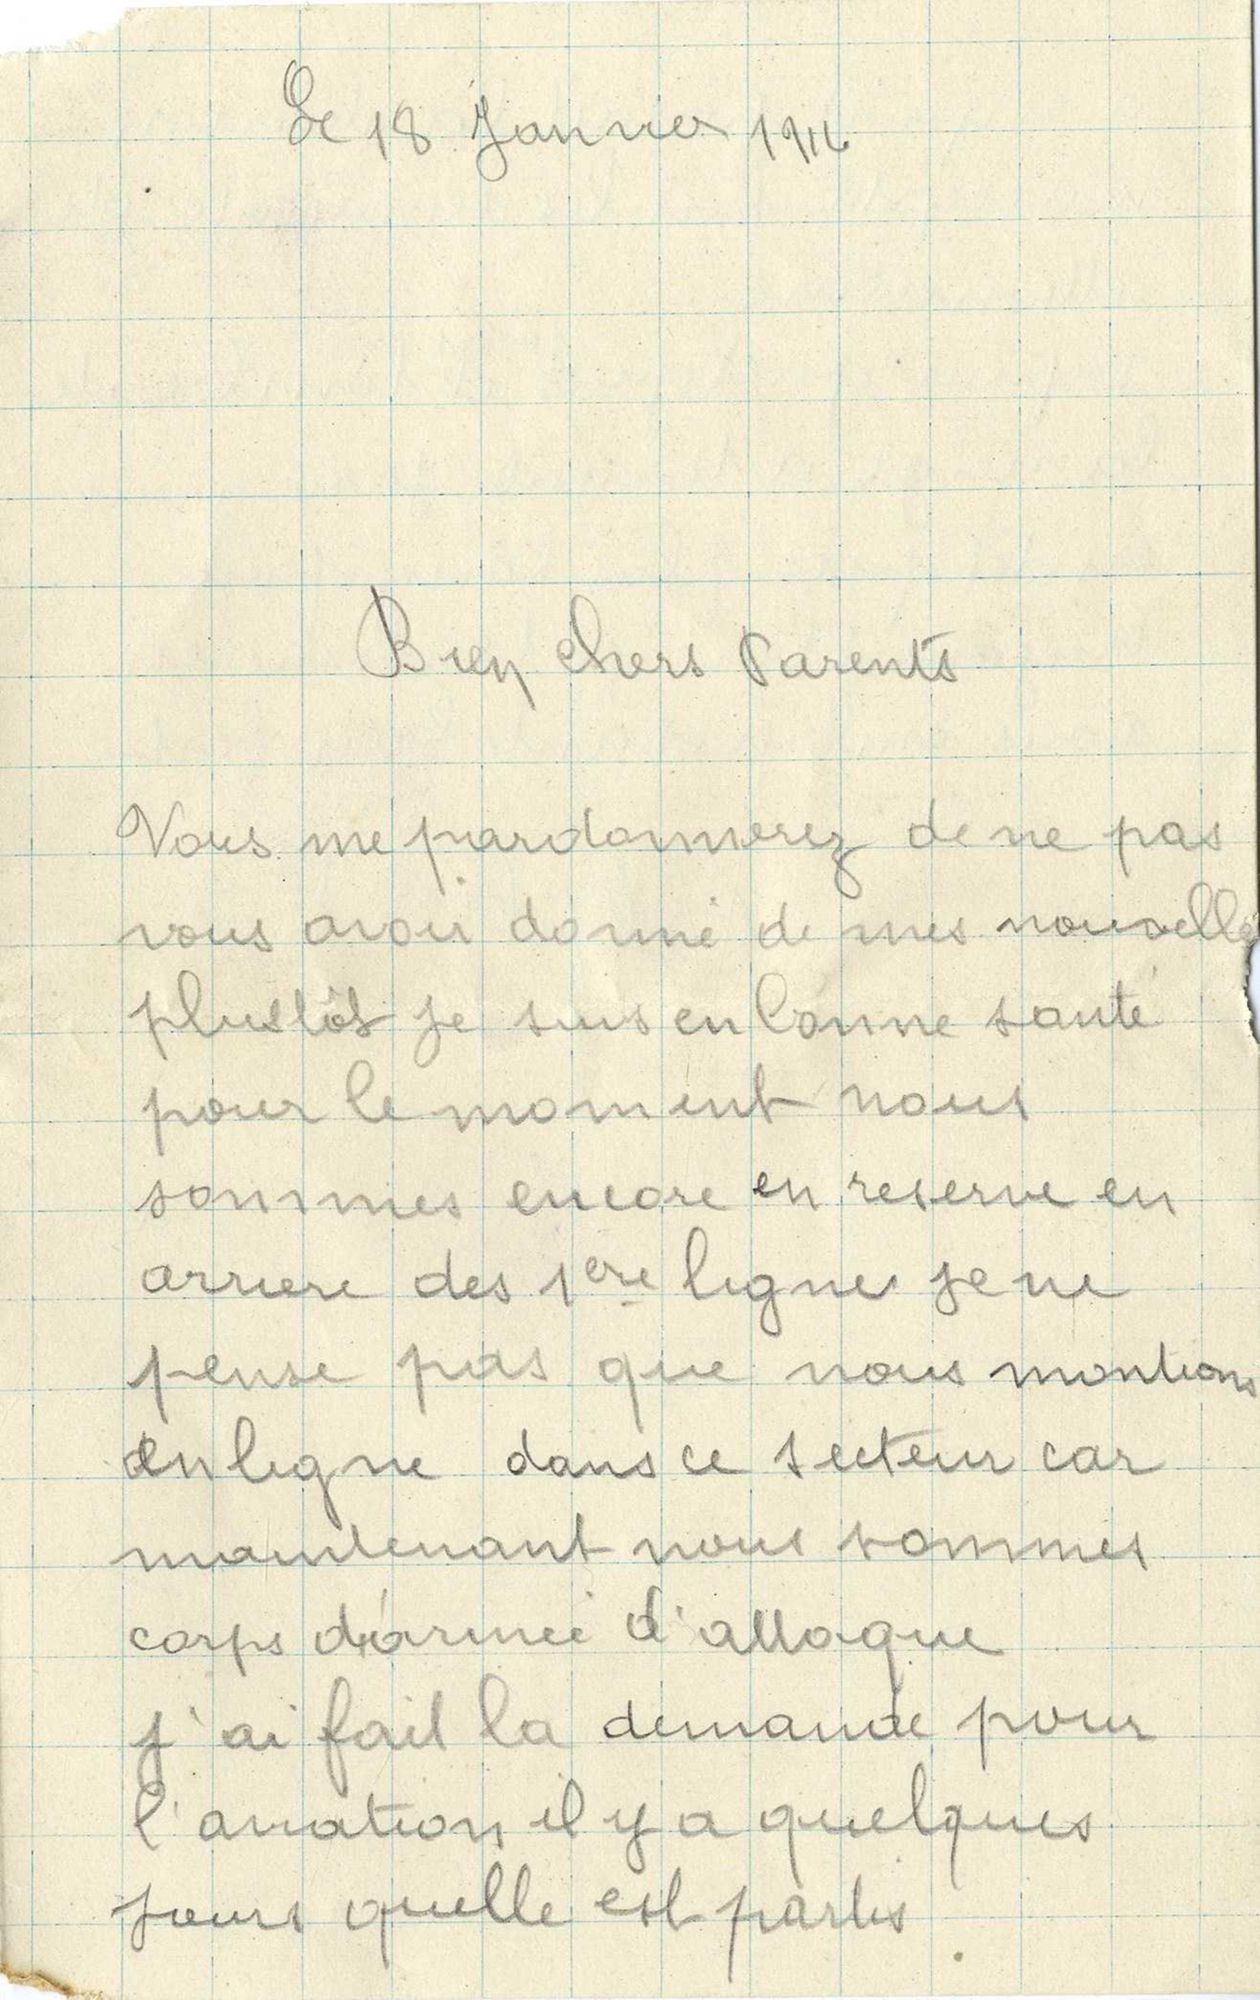 Le 18 Janvier 1916
Bien chers Parents
Vous me pardonnerez de ne pas
vous avoir donné de mes nouvelles
plustôt je suis en bonne santé
pour le moment nous
sommes encore en reserve en
arriere des 1ere lignes je ne
pense pas que nous montions
en ligne dans ce secteur car
maintenant nous sommes
corps d'armée d'attaque
j'ai fait la demande pour
l'aviation il y a quelques
jours quelle est partis